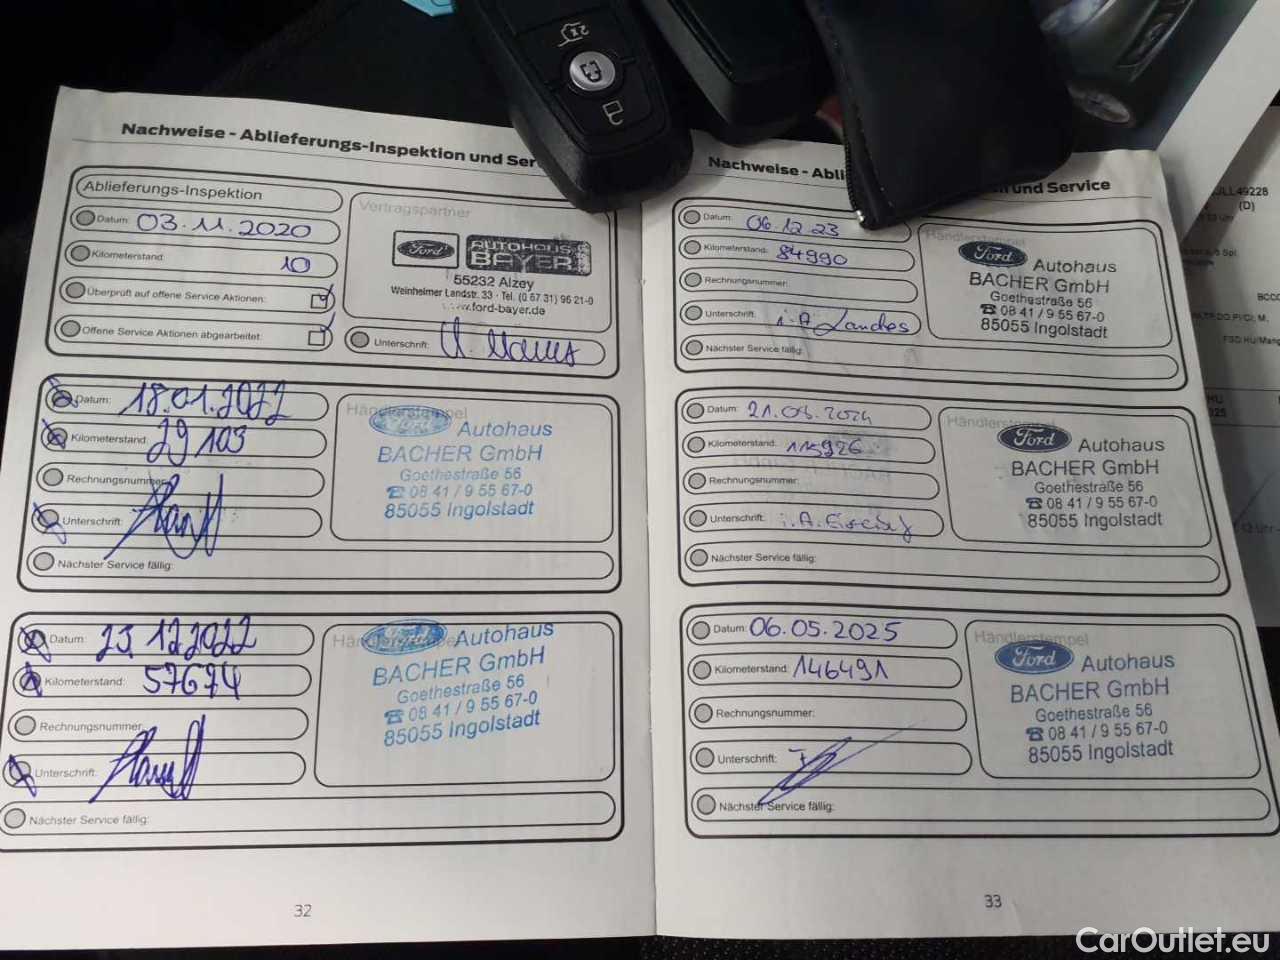 Nachweise - Ablieferungs-Inspektion und Ser
Ablieferungs-Inspektion
Datum: 03.11.2020
Kilometerstand: 10
Überprüft auf offene Service Aktionen:
Offene Service Aktionen abgearbeitet:
Vertragspartner
Ford AUTOHAUS BAYER
55232 Alzey
Weinheimer Landstr. 33 · Tel. (0 67 31) 96 21-0
www.ford-bayer.de
Unterschrift:
Datum: 18.01.2022
Kilometerstand: 29103
Rechnungsnummer:
Unterschrift:
Nächster Service fällig:
Händlerstempel
Ford Autohaus
BACHER GmbH
Goethestraße 56
☎ 08 41 / 9 55 67-0
85055 Ingolstadt
Datum: 23.12.2022
Kilometerstand: 57674
Rechnungsnummer:
Unterschrift:
Nächster Service fällig:
Händlerstempel
Ford Autohaus
BACHER GmbH
Goethestraße 56
☎ 08 41 / 9 55 67-0
85055 Ingolstadt
32
Nachweise - Abli
n und Service
Datum: 06.12.23
Kilometerstand: 84990
Rechnungsnummer:
Unterschrift: i.A.
Nächster Service fällig:
Händlerstempel
Ford Autohaus
BACHER GmbH
Goethestraße 56
☎ 08 41 / 9 55 67-0
85055 Ingolstadt
Datum: 21.08.2024
Kilometerstand: 115926
Rechnungsnummer:
Unterschrift: i.A.
Nächster Service fällig:
Händlerstempel
Ford Autohaus
BACHER GmbH
Goethestraße 56
☎ 08 41 / 9 55 67-0
85055 Ingolstadt
Datum: 06.05.2025
Kilometerstand: 146491
Rechnungsnummer:
Unterschrift:
Nächster Service fällig:
Händlerstempel
Ford Autohaus
BACHER GmbH
Goethestraße 56
☎ 08 41 / 9 55 67-0
85055 Ingolstadt
33
2x
JLL49228
(D)
CarOutlet.eu